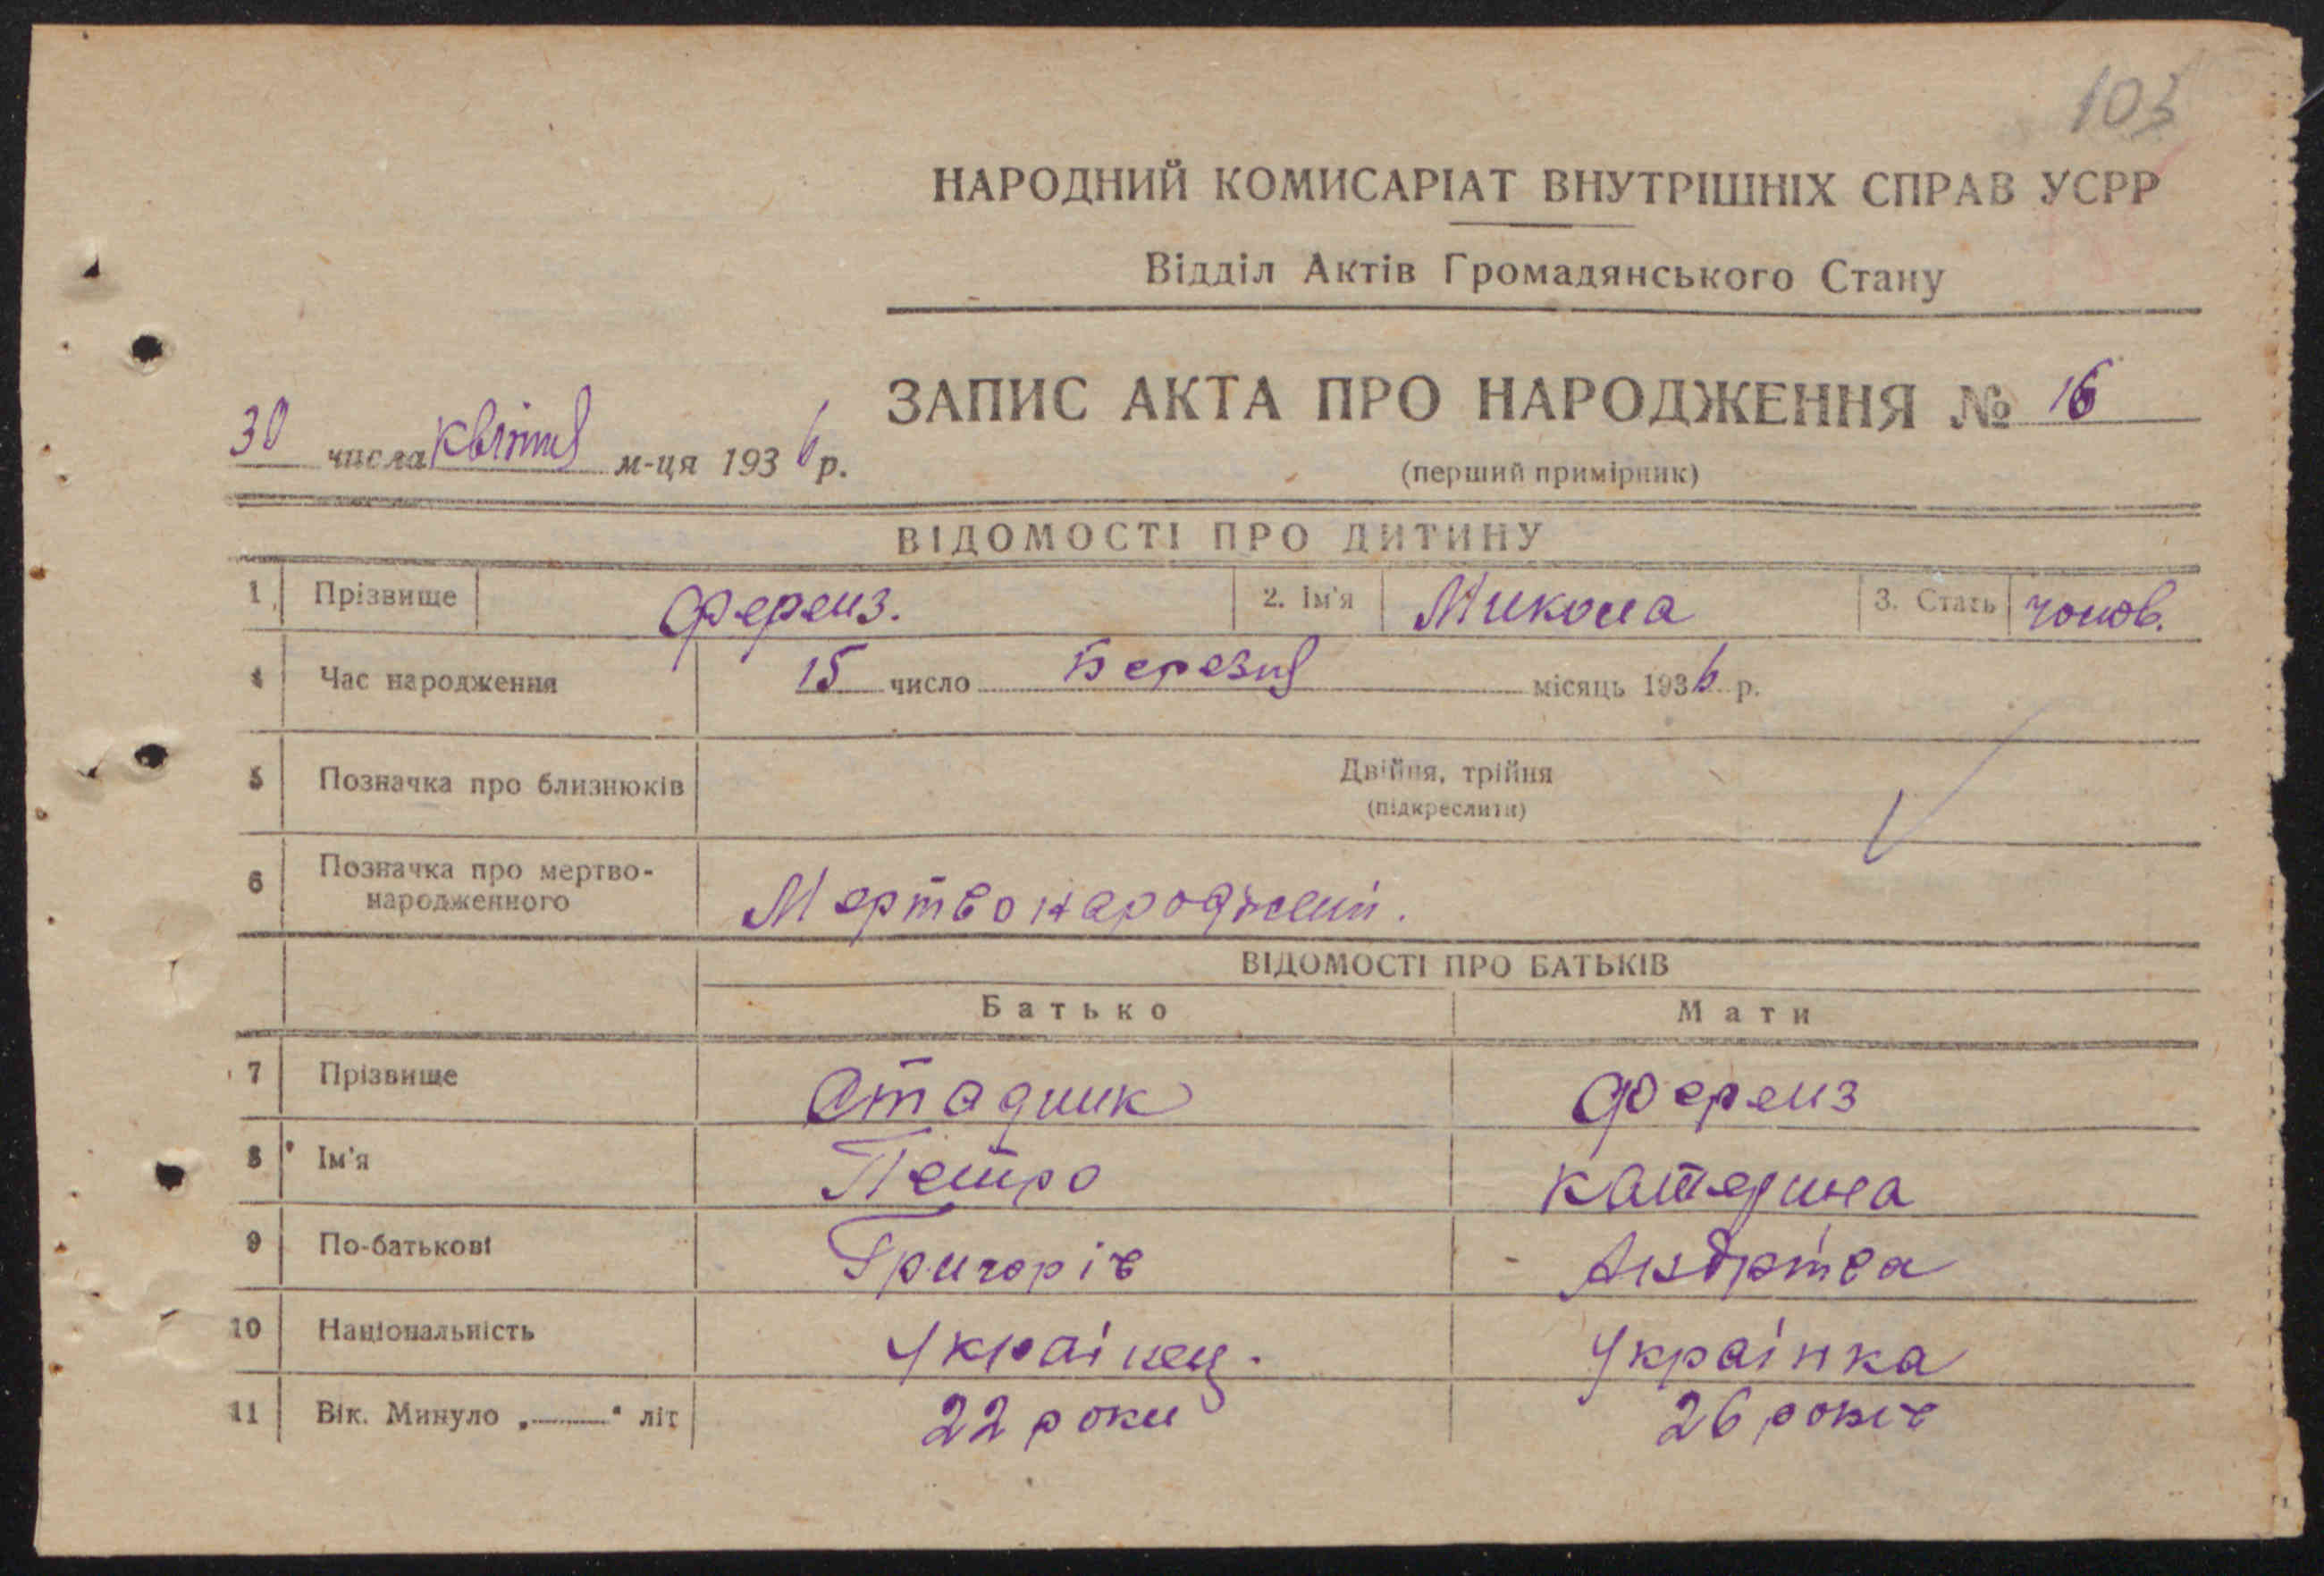 103
НАРОДНИЙ КОМИСАРІАТ ВНУТРІШНІХ СПРАВ УСРР
Відділ Актів Громадянського Стану
ЗАПИС АКТА ПРО НАРОДЖЕННЯ № 16
30 числа квітня м-ця 1936 р.
(перший примірник)
ВІДОМОСТІ ПРО ДИТИНУ
1 Прізвище Ференз. 2. Ім'я Микола 3. Стать чолов.
4 Час народження 15 число Березня місяць 1936 р.
5 Позначка про близнюків Двійня, трійня
(підкреслити)
6 Позначка про мертво-
народженного Мертвонароджений.
ВІДОМОСТІ ПРО БАТЬКІВ
Батько Мати
7 Прізвище Стадник Ференз
8 Ім'я Петро Катерина
9 По-батькові Григорів Андріїва
10 Національність Українец. Українка
11 Вік. Минуло „——“ літ 22 роки 26 років